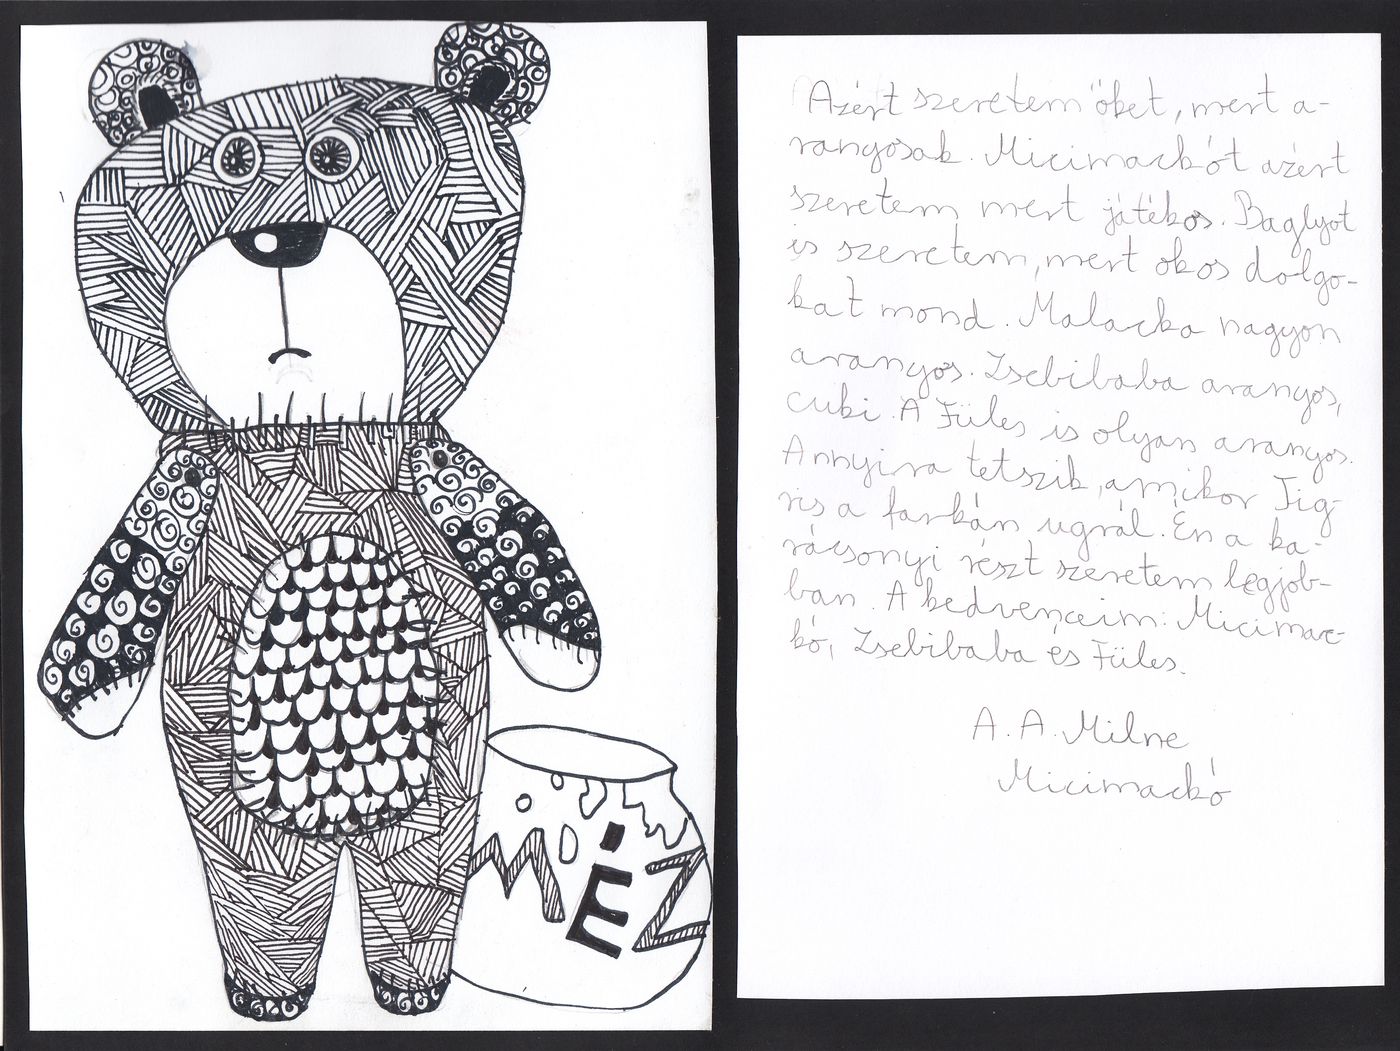 MÉZ
Azért szeretem őket, mert a-
ranyosak. Micimackót azért
szeretem mert játékos. Baglyot
is szeretem, mert okos dolgo-
kat mond. Malacka nagyon
aranyos. Zsebibaba aranyos,
cuki. A Füles is olyan aranyos.
Annyira tetszik, amikor Tig-
ris a farkán ugrál. Én a ka-
rácsonyi részt szeretem legjob-
ban. A kedvenceim: Micimac-
kó, Zsebibaba és Füles.
A. A. Milne
Micimackó